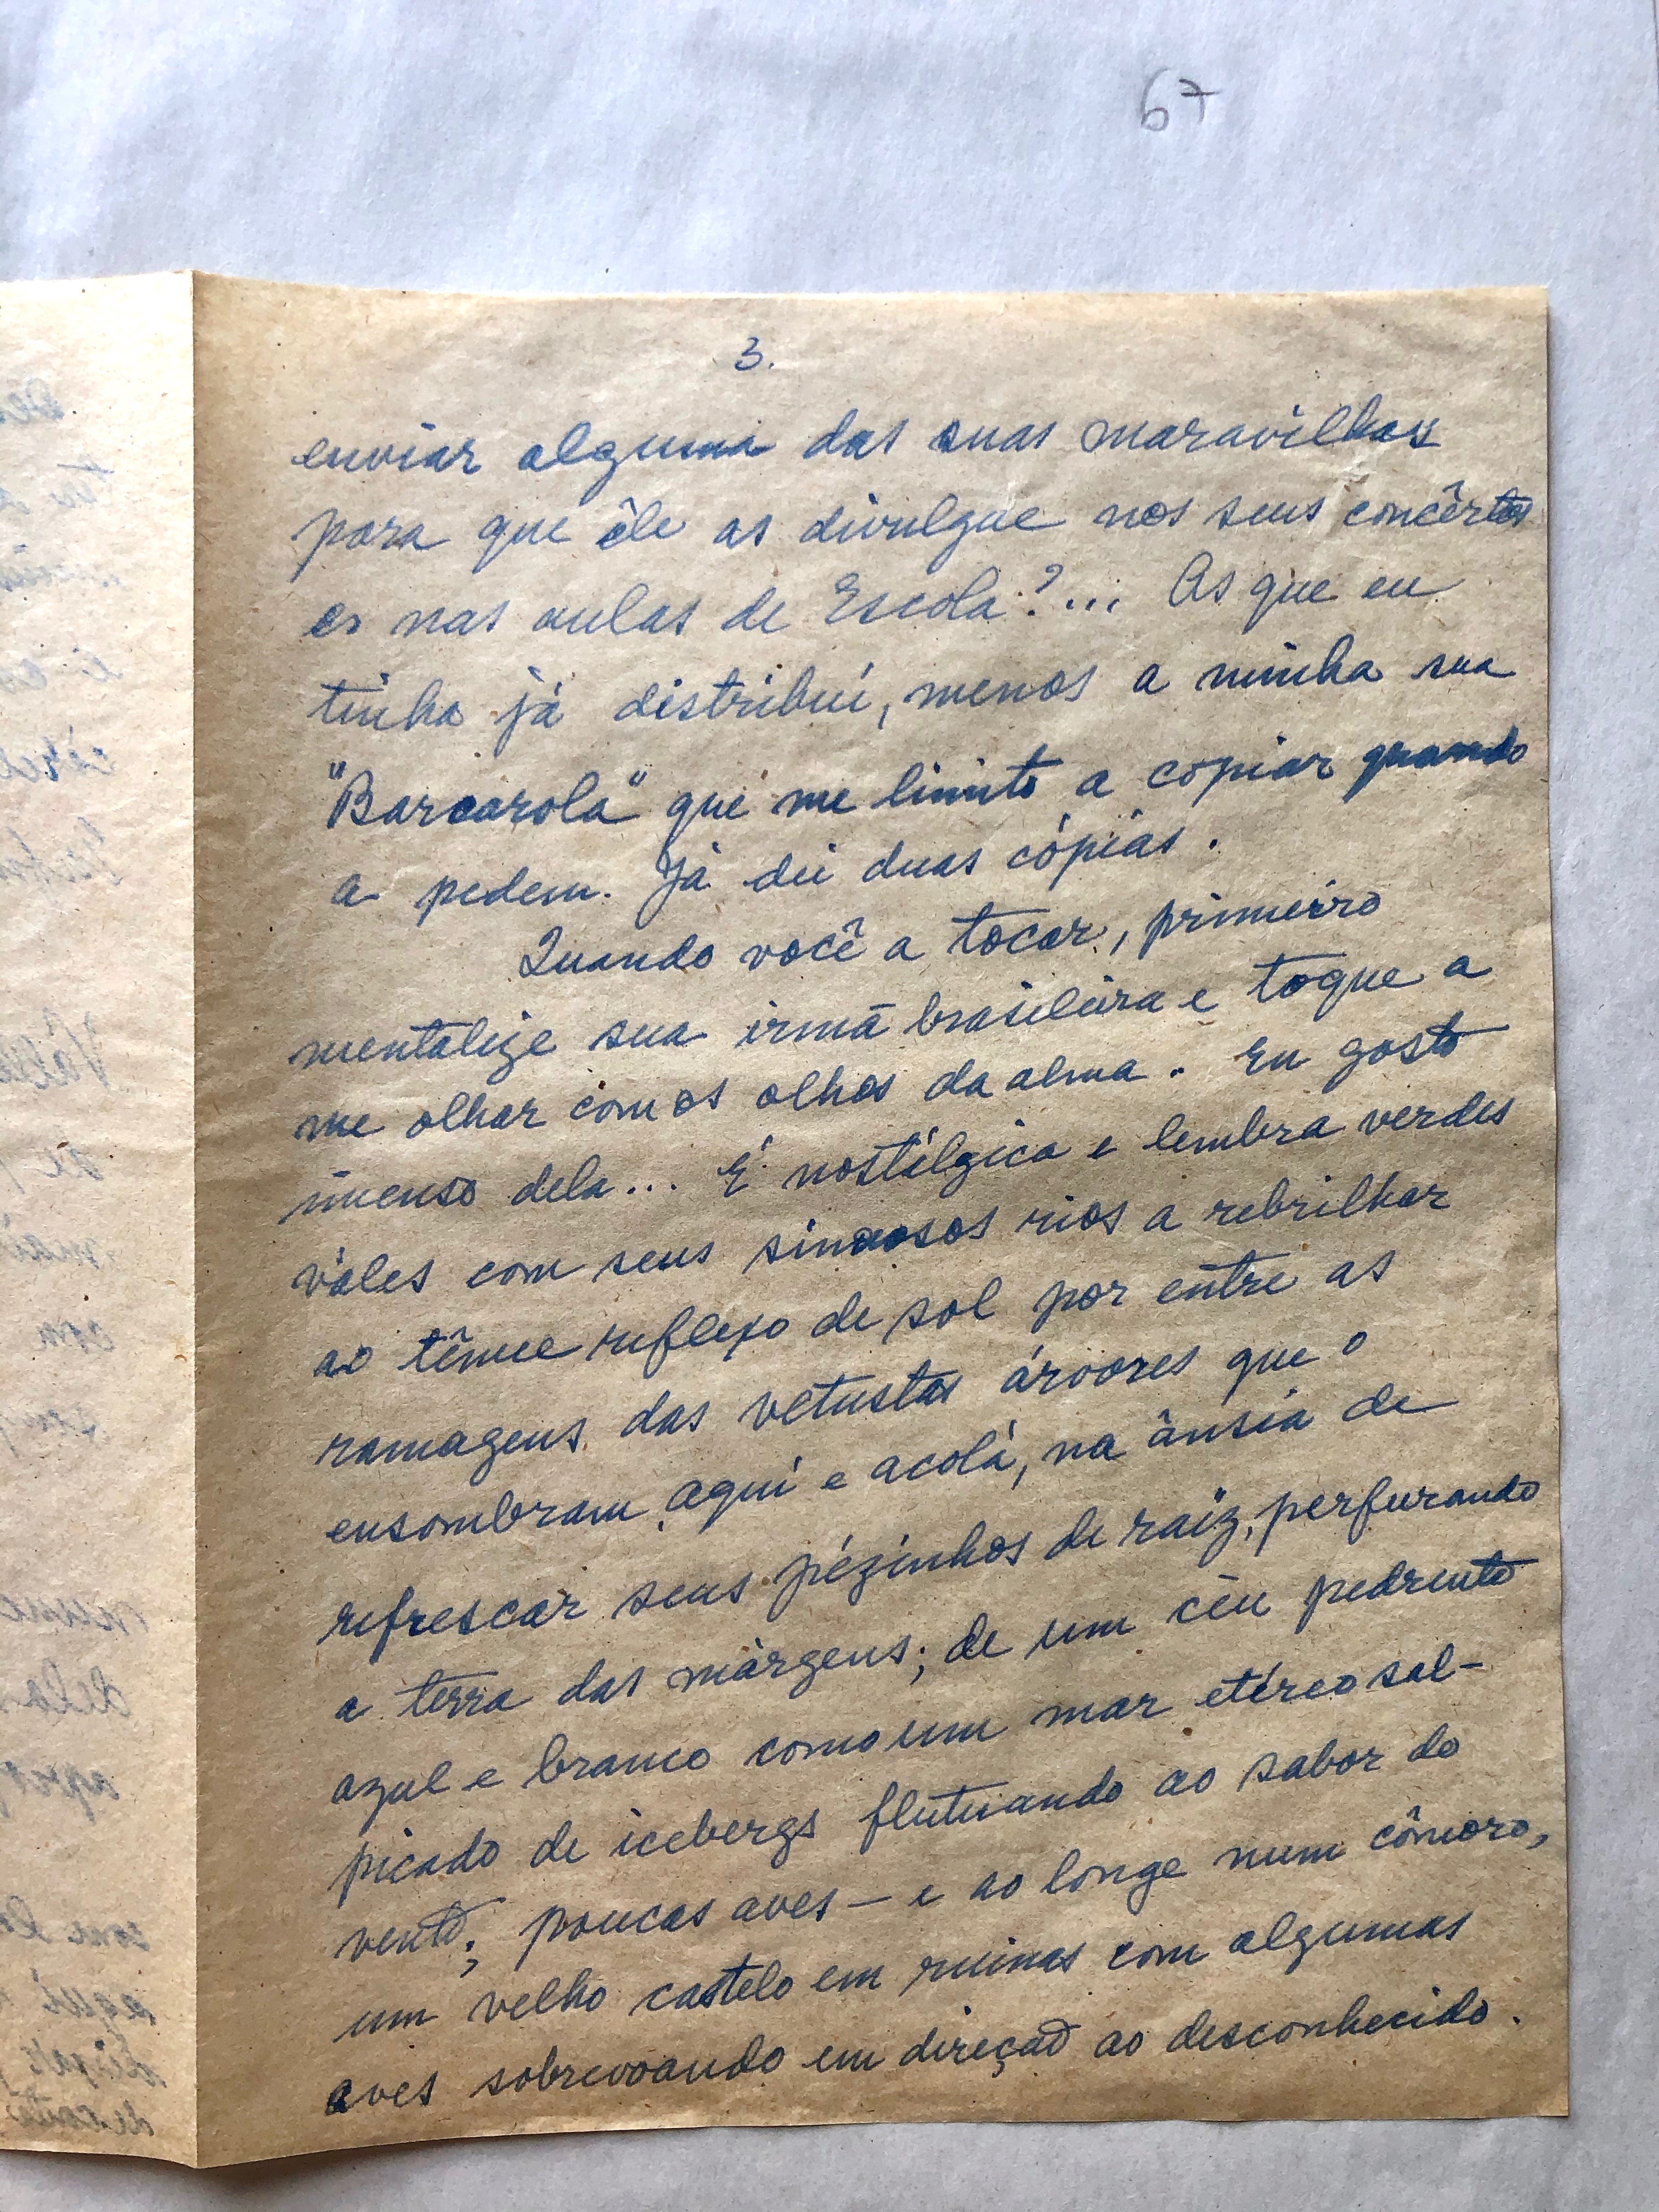 67
3.
enviar alguma das suas maravilhas
para que êle as divulgue nos seus concêrtos
es nas aulas de Escola?... As que eu
tinha já distribuí, menos a minha sua
"Barcarola" que me limito a copiar quando
a pedem. Já dei duas cópias.
Quando você a tocar, primeiro
mentalize sua irmã brasileira e toque a
me olhar com os olhos da alma. Eu gosto
imenso dela... É nostálgica e lembra verdes
vales com seus sinuosos rios a rebrilhar
ao tênue reflexo de sol por entre as
ramagens das vetustas árvores que o
ensombram aqui e acolá, na ânsia de
refrescar seus pézinhos de raiz, perfurando
a terra das márgens; de um céu pedrento
azul e branco como um mar etéreo sal-
picado de icebergs flutuando ao sabor do
vento; poucas aves — e ao longe num cômoro,
um velho castelo em ruinas com algumas
aves sobrevoando em direção ao desconhecido.